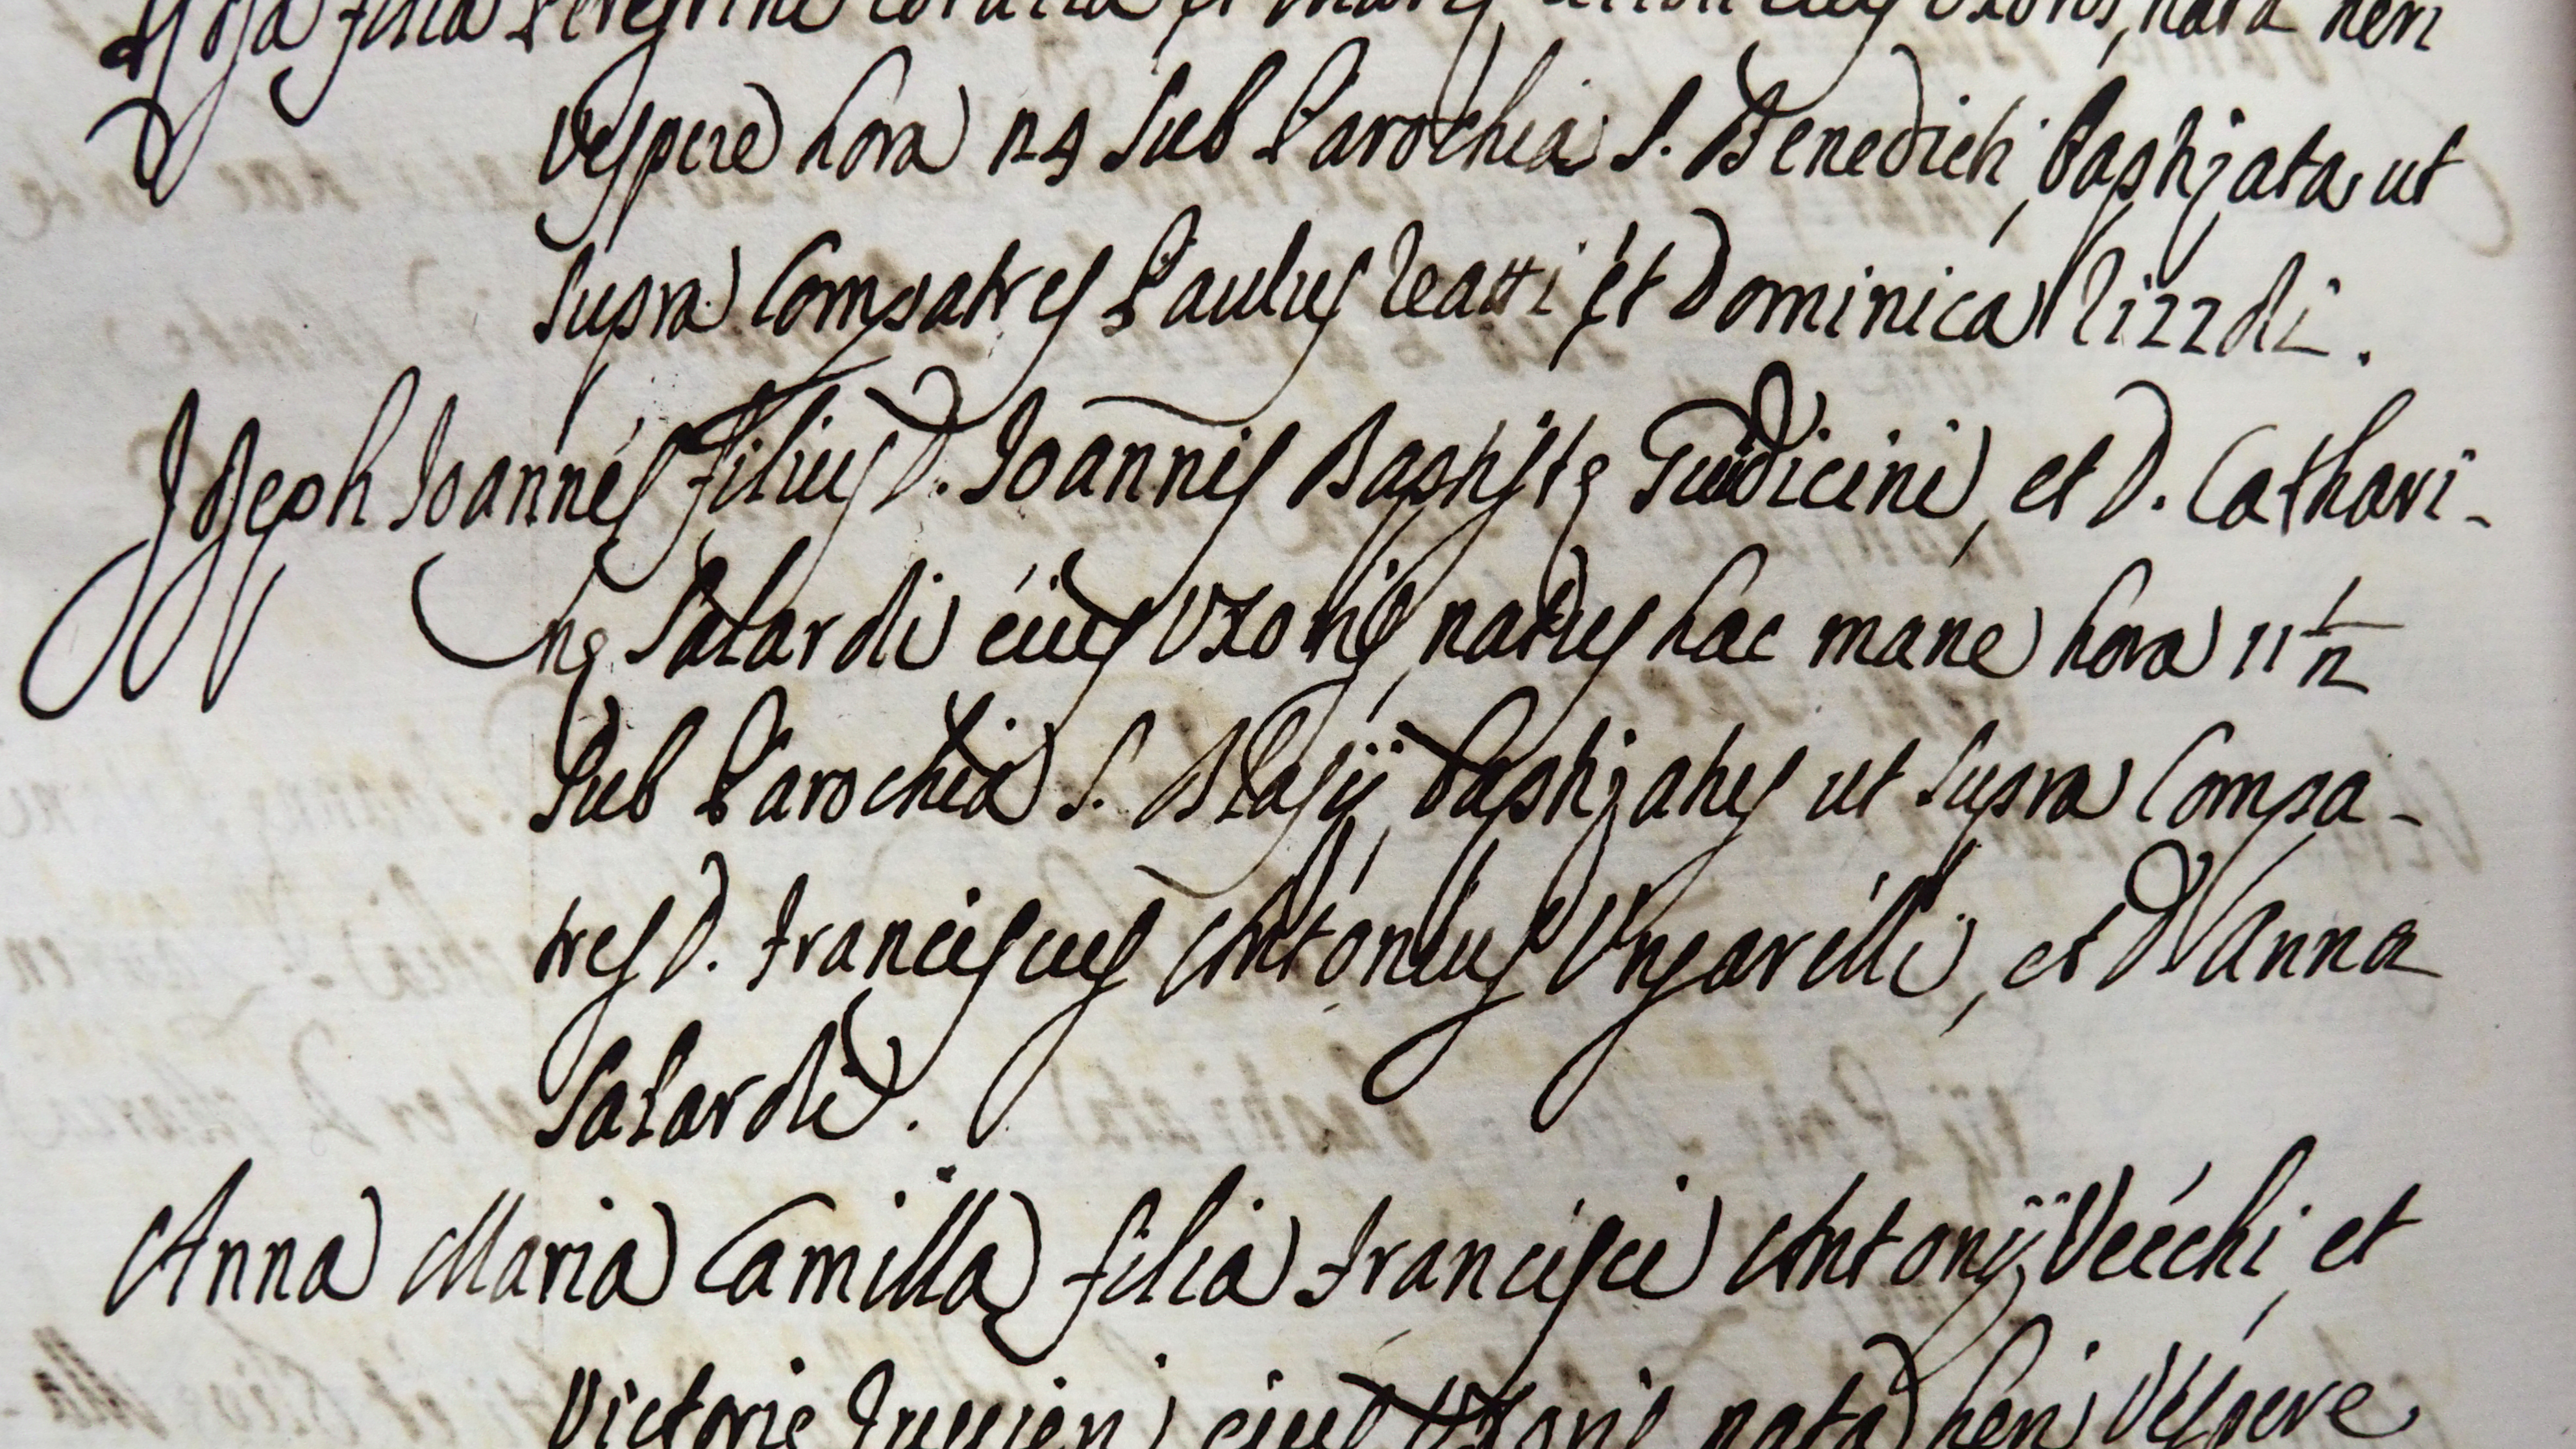 filia Peregrini et eius Uxoris, nata heri
Vespere hora 24 sub Parochia S. Benedicti, baptizata ut
supra Compatres Paulus Leatti et Dominica Rizzoli.
Joseph Joannes filius D. Joannis Baptistę Guidicini, et D. Cathari-
nę Salaroli eius Uxoris, natus hac mane hora 11 1/2
sub Parochia S. Blasij, baptizatus ut supra Compa-
tres D. Franciscus Antonius Ungarelli, et D. Anna
Salaroli.
Anna Maria Camilla filia Francisci Antonij Vecchi, et
Victorię eius Uxoris nata heri Vespere